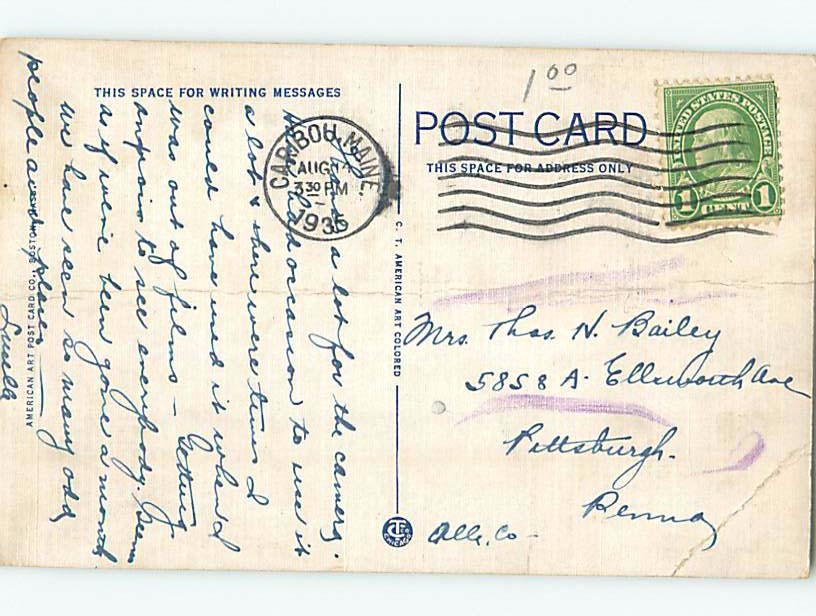 1 00
THIS SPACE FOR WRITING MESSAGES
POST CARD
THIS SPACE FOR ADDRESS ONLY
UNITED STATES POSTAGE
1 CENT 1
CARIBOU, MAINE
AUG 14
3 30 PM
1935
a lot for the camera.
had occasion to use it
a lot & there were times I
could have used it when I
was out of films - Getting
anxious to see everybody. Seems
as if we've been gone a month
we have seen so many odd
people and places
Luella
Mrs. Thos. H. Bailey
5858 A. Ellsworth Ave
Pittsburgh.
Penna
Alle. Co -
C. T. AMERICAN ART COLORED
AMERICAN ART POST CARD CO., BOSTON